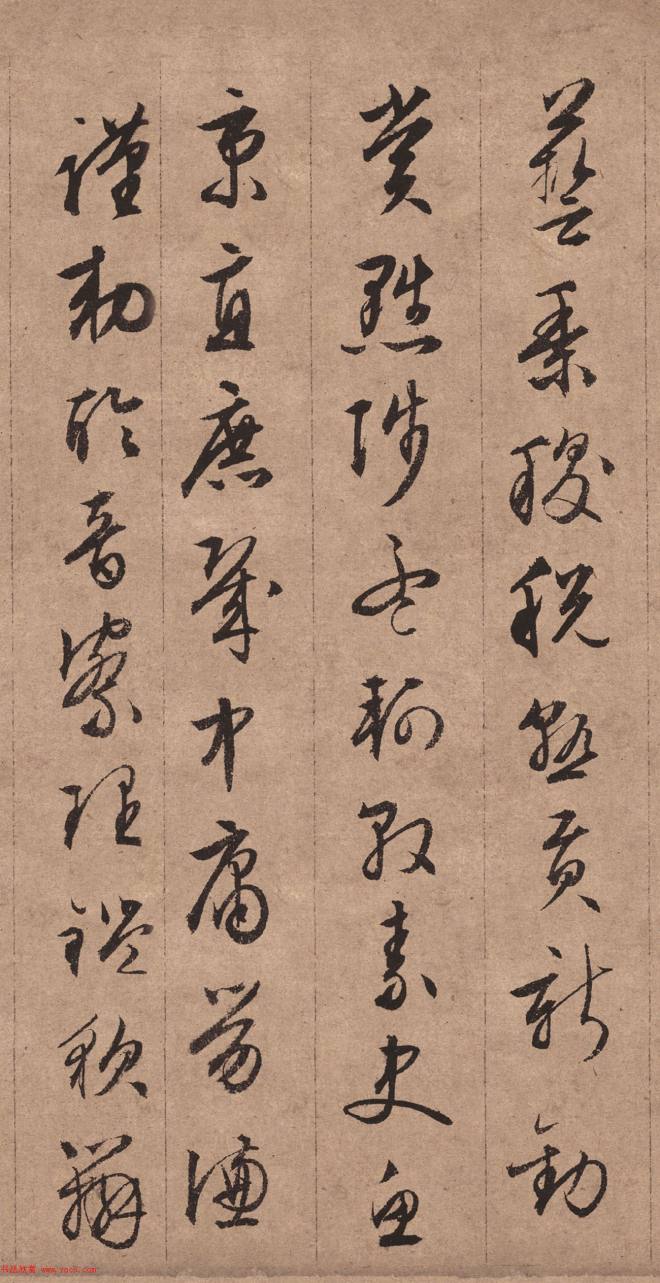 藝黍稷稅熟貢新勸
賞黜陟孟軻敦素史魚
秉直庶幾中庸勞謙
謹勅聆音察理鑑貌辨
书法欣赏 www.yac8.com